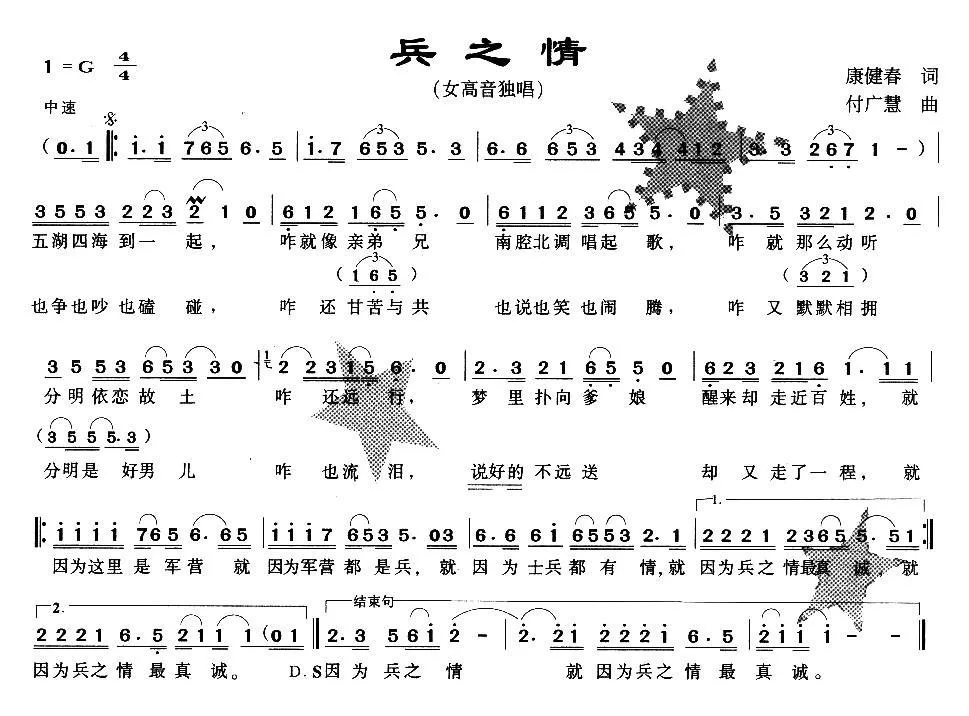 兵之情
(女高音独唱)
1=G 4/4
康健春 词
付广慧 曲
中速
(0.1 ‖: 1.1 765 6.5 | 1.7 653 5.3 | 6.6 653 434 412 | 3.3 267 1 -)|
3553 223 2 1 0 | 612 165 5.0 | 6112 365 5.0 | 3.5 321 2.0 |
五湖四海 到一 起， 咋就像亲弟 兄 南腔北调 唱起 歌， 咋 就 那么动听
(165) (321)
也争也吵也磕 碰， 咋 还 甘苦与共 也说也笑也闹 腾， 咋 又 默默相拥
35 53 653 30 | 2 2315 6.0 | 2.3 21 65 50 | 623 2216 1.11 |
分明依恋故土 咋 还远 行， 梦里扑向爹 娘 醒来却 走近百 姓， 就
(35 55.3)
分明是 好男 儿 咋 也流 泪， 说好的 不远送 却 又 走了一 程， 就
‖: 1111 765 6.65 | 1117 653 5.03 | 6.6 61 6553 2.1 | 1. 2221 2365 5.51 :‖
因为这里 是 军营 就 因为军营 都 是兵， 就 因 为 士兵都 有 情，就 因为兵之 情最真 诚， 就
2. 结束句
2221 6.5 211 1 (01 ‖ 2.3 561 2 - | 2. 21 2221 6.5 | 211 1 - - ‖
因为兵之 情 最 真 诚。 D.S因 为 兵之 情 就 因为兵之 情 最 真 诚。